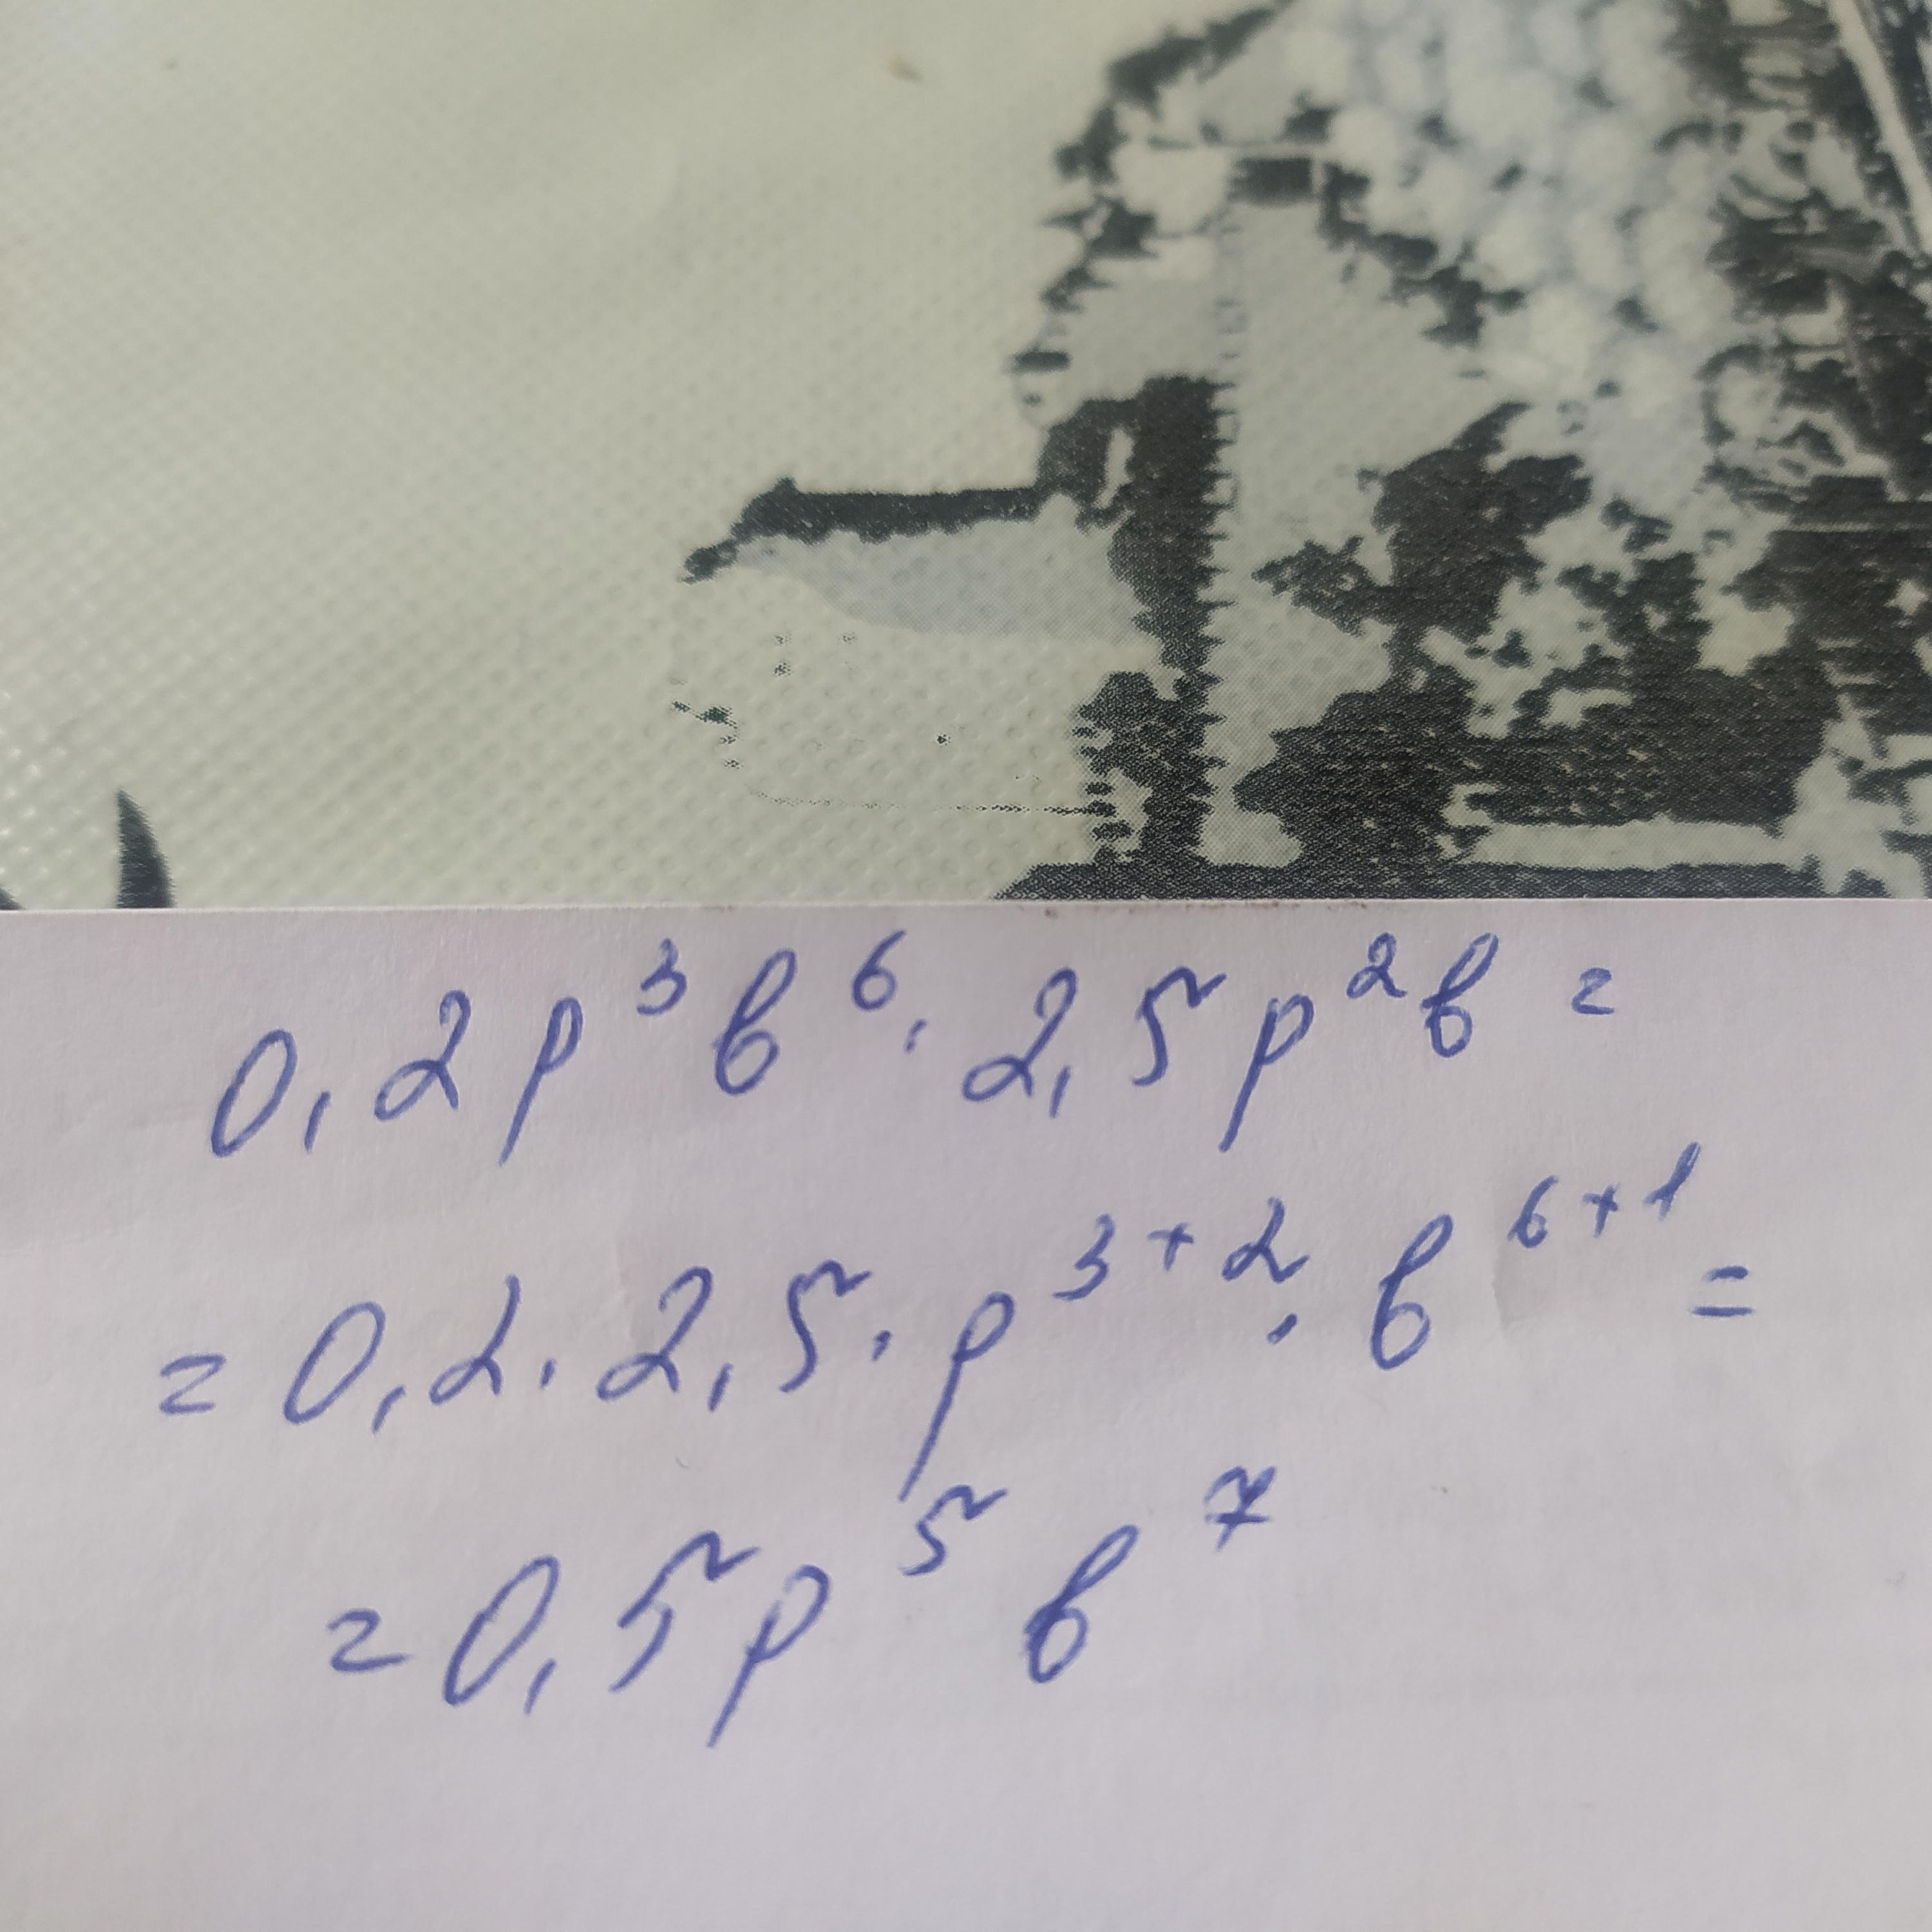 0,2p³b⁶·2,5p²b=
=0,2·2,5·p³⁺²·b⁶⁺¹=
=0,5p⁵b⁷